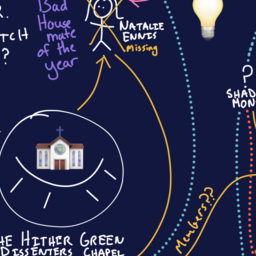 Bad
House
mate
of the
year
?
NATALIE
ENNIS
Missing
?
SHAD
MON
Members??
HE HITHER GREEN
DISSENTERS CHAPEL